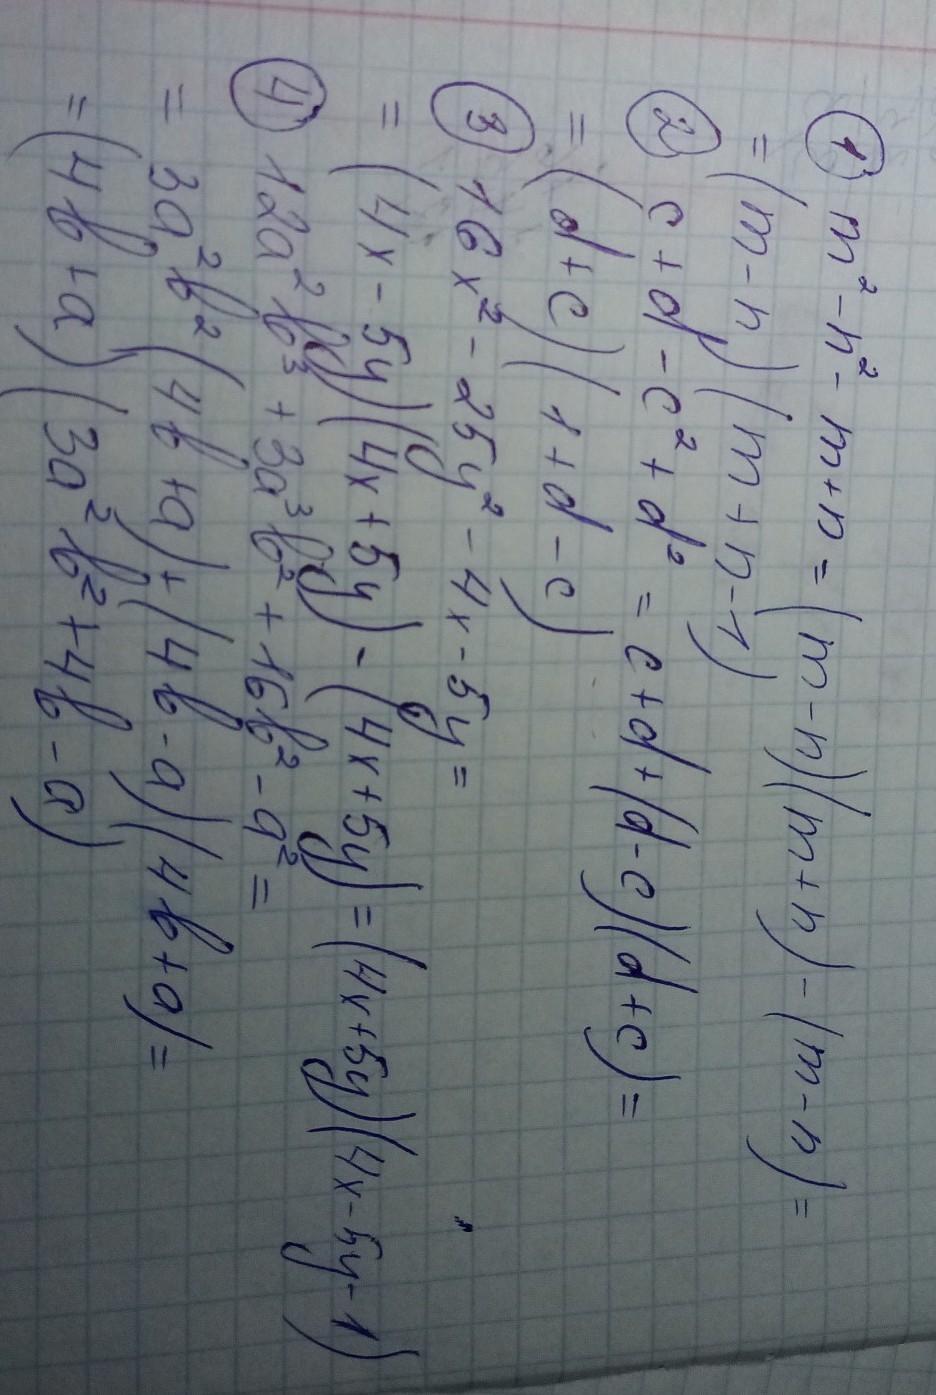 ① m² - n² - m + n = (m - n)(m + n) - (m - n) =
= (m - n)(m + n - 1)
② c + d - c² + d² = c + d + (d - c)(d + c) =
= (d + c)(1 + d - c)
③ 16x² - 25y² - 4x - 5y =
= (4x - 5y)(4x + 5y) - (4x + 5y) = (4x + 5y)(4x - 5y - 1)
④ 12a²b³ + 3a³b² + 16b² - a² =
= 3a²b²(4b + a) + (4b - a)(4b + a) =
= (4b + a)(3a²b² + 4b - a)